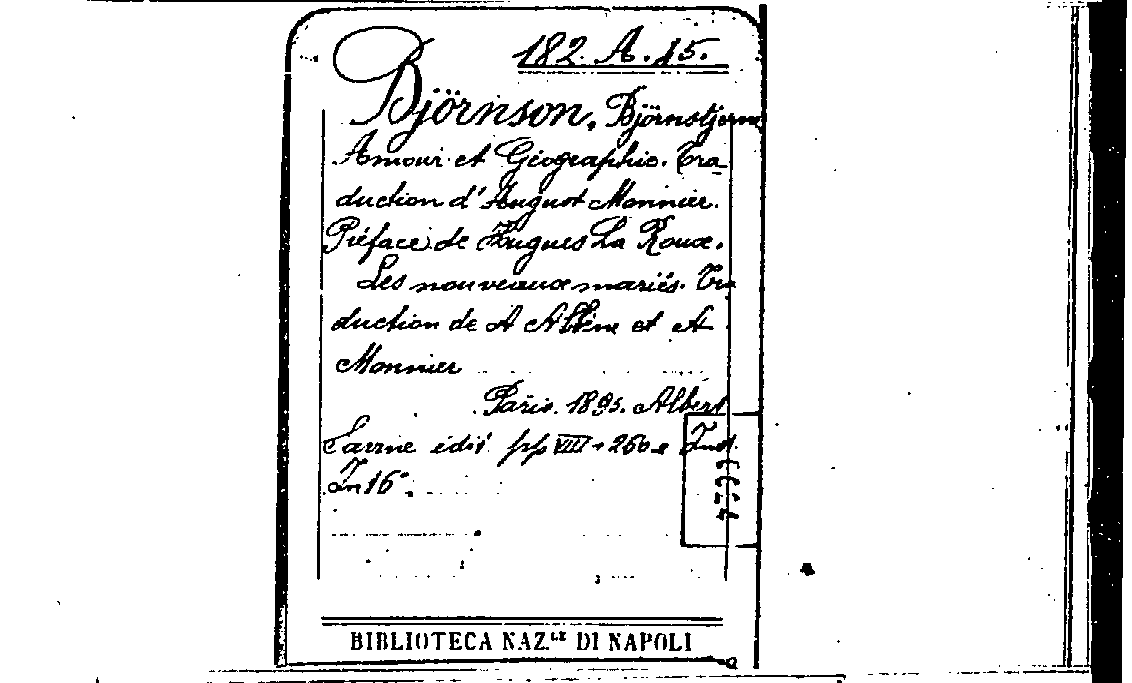 182. A. 15.
Björnson, Björnstjerne
Amour et Géographie. Tra-
duction d'August Monnier.
Préface de Hugues La Roux.
Les nouveaux mariés. Tra
duction de A et A
Monnier
Paris. 1893. Albert
Savine édit pp VIII + 260
In 16°.
BIBLIOTECA NAZ.LE DI NAPOLI